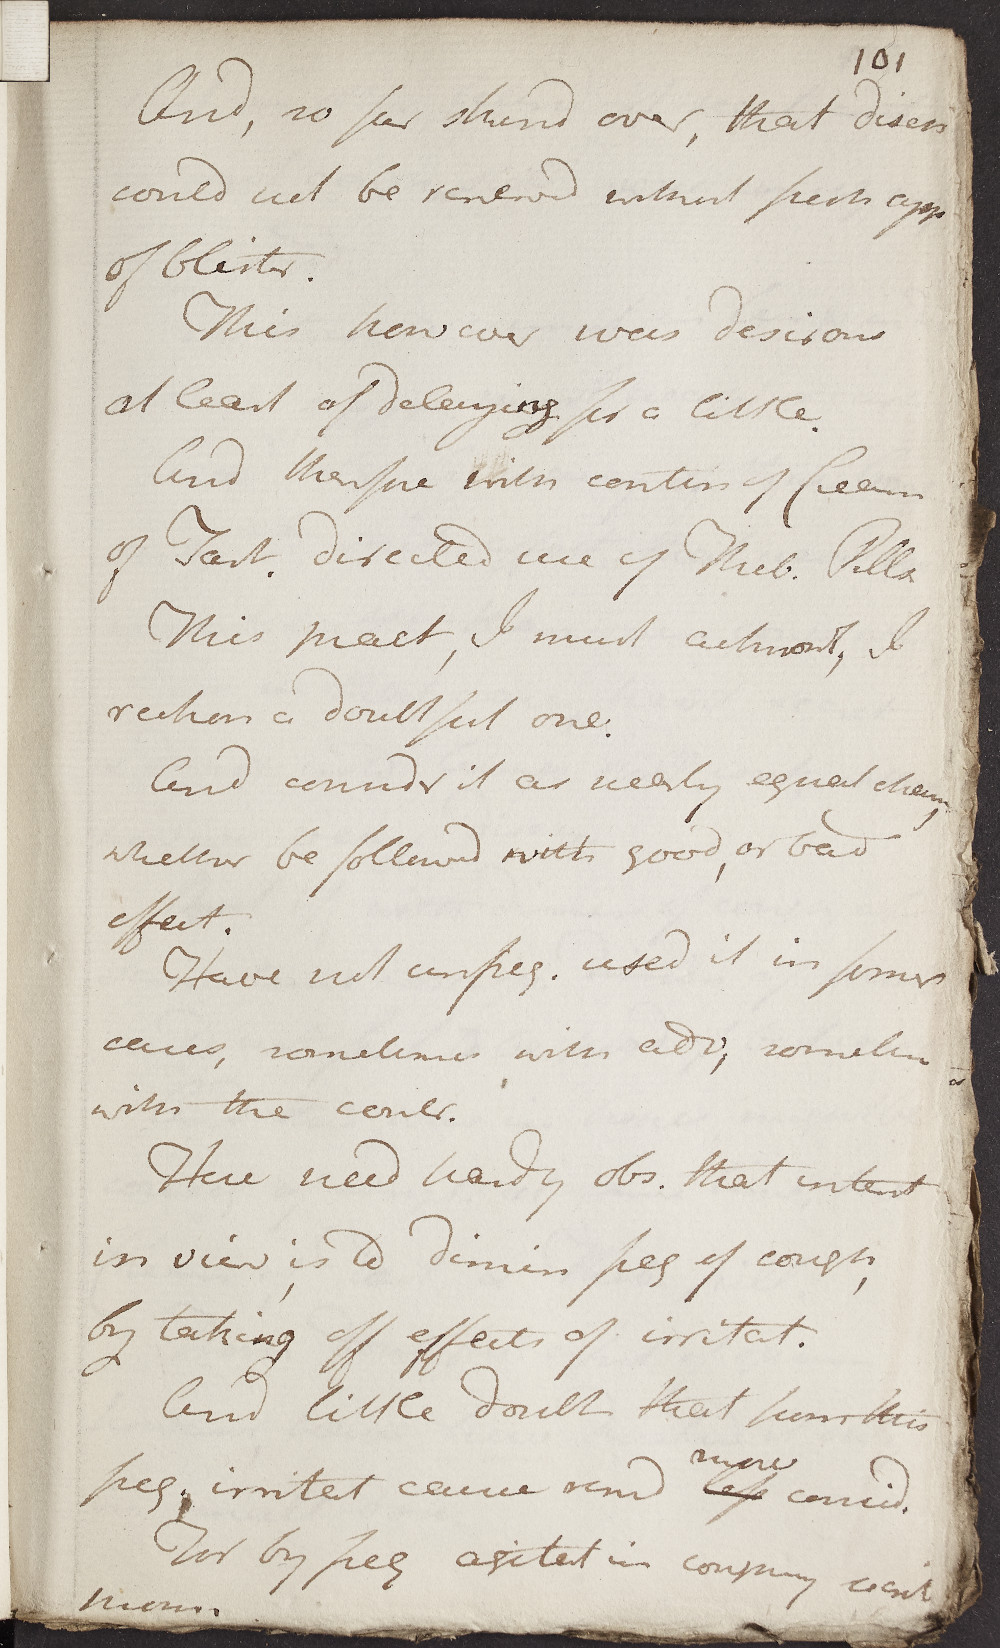 101
And, so far skind over, that disch
could not be renewd without fresh app
of blister.
This however was desirous
at least of delaying for a little.
And therefore with contin of Cream
of Tart. directed use of Theb. Pills
This pract, I must acknowl, I
reckon a doubtful one.
And consider it as nearly equal chan,
whether be followed with good, or bad
effect.
Have not unfreq. used it in former
cases, sometimes with adv, sometim
with the contr.
Here need hardly obs. that intent
in view, is to dimin freq of cough,
by taking off effects of irritat.
And little doubt that from this
freq. irritat cause rend more
less consid.
For by freq agitat in